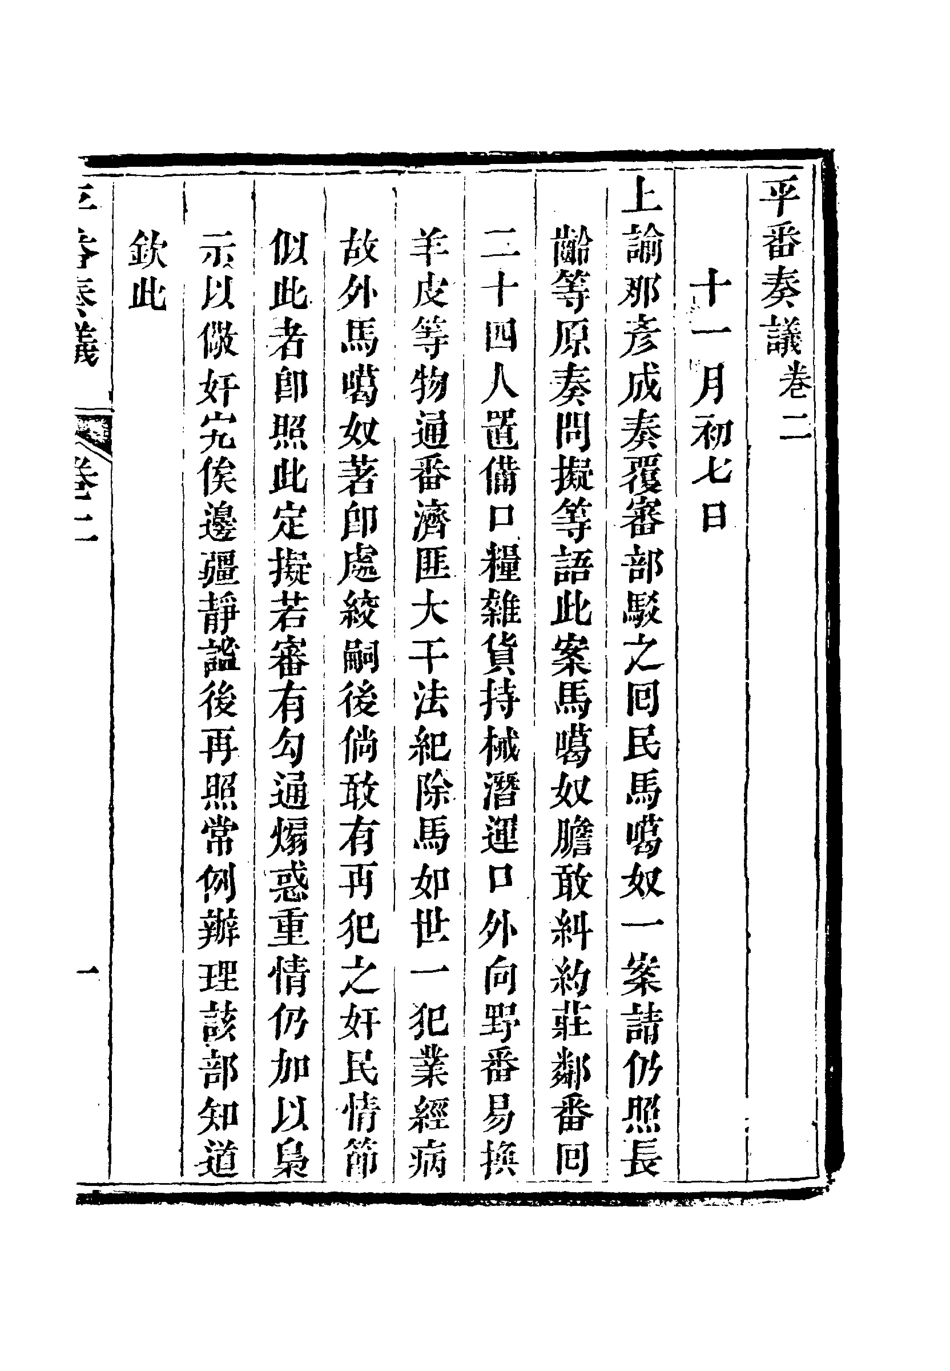 平番奏議卷二
十一月初七日
上諭那彥成奏覆審部駁之囘民馬噶奴一案請仍照長
齡等原奏問擬等語此案馬噶奴膽敢糾約莊鄰番囘
二十四人置備口糧雜貨持械潛運口外向野番易換
羊皮等物通番濟匪大干法紀除馬如世一犯業經病
故外馬噶奴著卽處絞嗣後倘敢有再犯之奸民情節
似此者卽照此定擬若審有勾通煽惑重情仍加以梟
示以儆奸宄俟邊疆靜謐後再照常例辦理該部知道
欽此
平番奏議 卷二 一